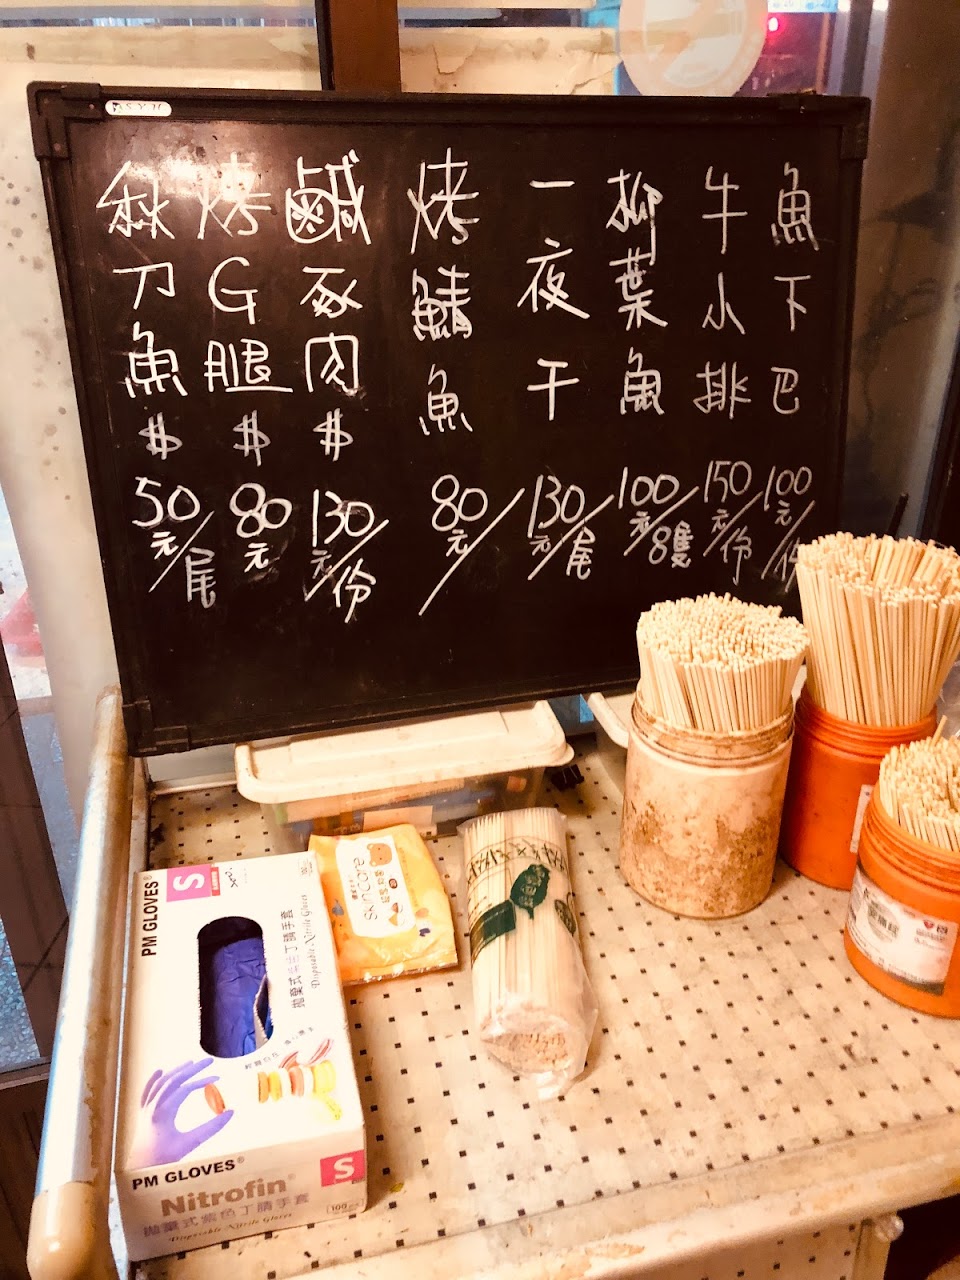 魚下巴 100元/份
牛小排 150元/份
柳葉魚 100元/8隻
一夜干 130元/尾
烤鯖魚 80元/
鹹豕肉 $130元/份
烤G腿 $80元
秋刀魚 $50元/尾
PM GLOVES®
S
拋棄式紫色丁腈手套
Disposable Nitrile Gloves
SkinCare
PM GLOVES®
S
Nitrofin®
100
拋棄式紫色丁腈手套
Disposable Nitrile Gloves